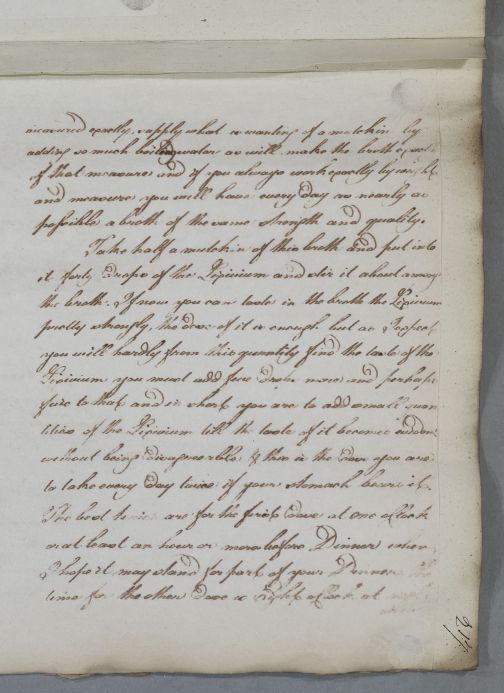 measured exactly. supply what is wanting of a mutchkin by
adding so much boiling water as will make the broth exactly
of that measure and if you always work exactly by weight
and measure you will have every day as nearly as
possible a broth of the same strength and quality.
Take half a mutchkin of this broth and put into
it forty drops of the Lixivium and stir it about among
the broth. If now you can taste in the broth the Lixivium
pretty strongly, the dose of it is enough but as I expect
you will hardly from this quantity find the taste of the
Lixivium you must add five drops more and perhaps
five to that and in short you are to add small quan
tities of the Lixivium till the taste of it become evident
without being disagreeable & this is the Dose you are
to take every day twice if your stomach bears it.
The best times are for the first Dose at one o'Clock
or at least an hour or more before Dinner when
I hope it may stand for part of your Dinner the
time for the other Dose is Eight o'Clock at